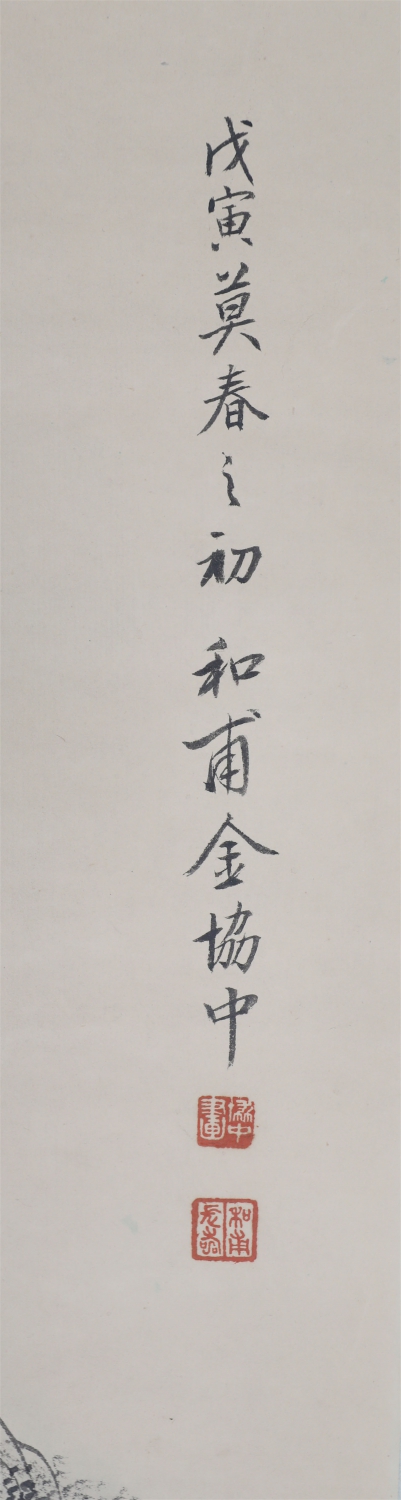 戊寅莫春之初 和甫金協中
協中畫
和甫長壽